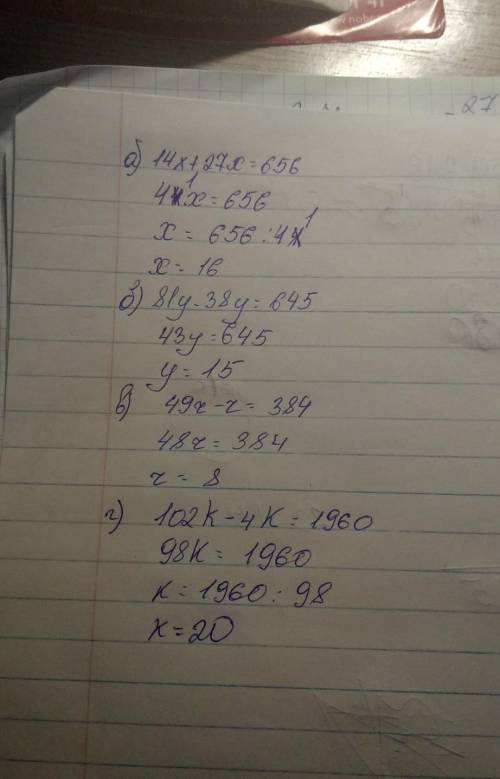 а) 14x+27x=656
41x=656
x = 656:41
x = 16
б) 81y-38y=645
43y=645
y=15
в) 49r-r=384
48r=384
r = 8
г) 102k-4k=1960
98k=1960
k=1960:98
k=20